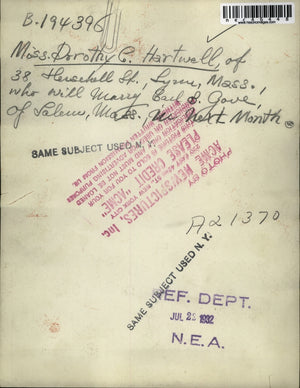 B-194396
Miss. Dorothy C. Hartwell, of
38 Herschell St., Lynn, Mass.,
who will Marry Earl S. Gove,
of Salem, Mass. Next Month.
SAME SUBJECT USED N.Y.
PHOTO BY
ACME NEWSPICTURES, Inc.
NEW YORK CITY
PLEASE CREDIT "ACME"
A21370
SAME SUBJECT USED N.Y.
REF. DEPT.
1932
N.E.A.